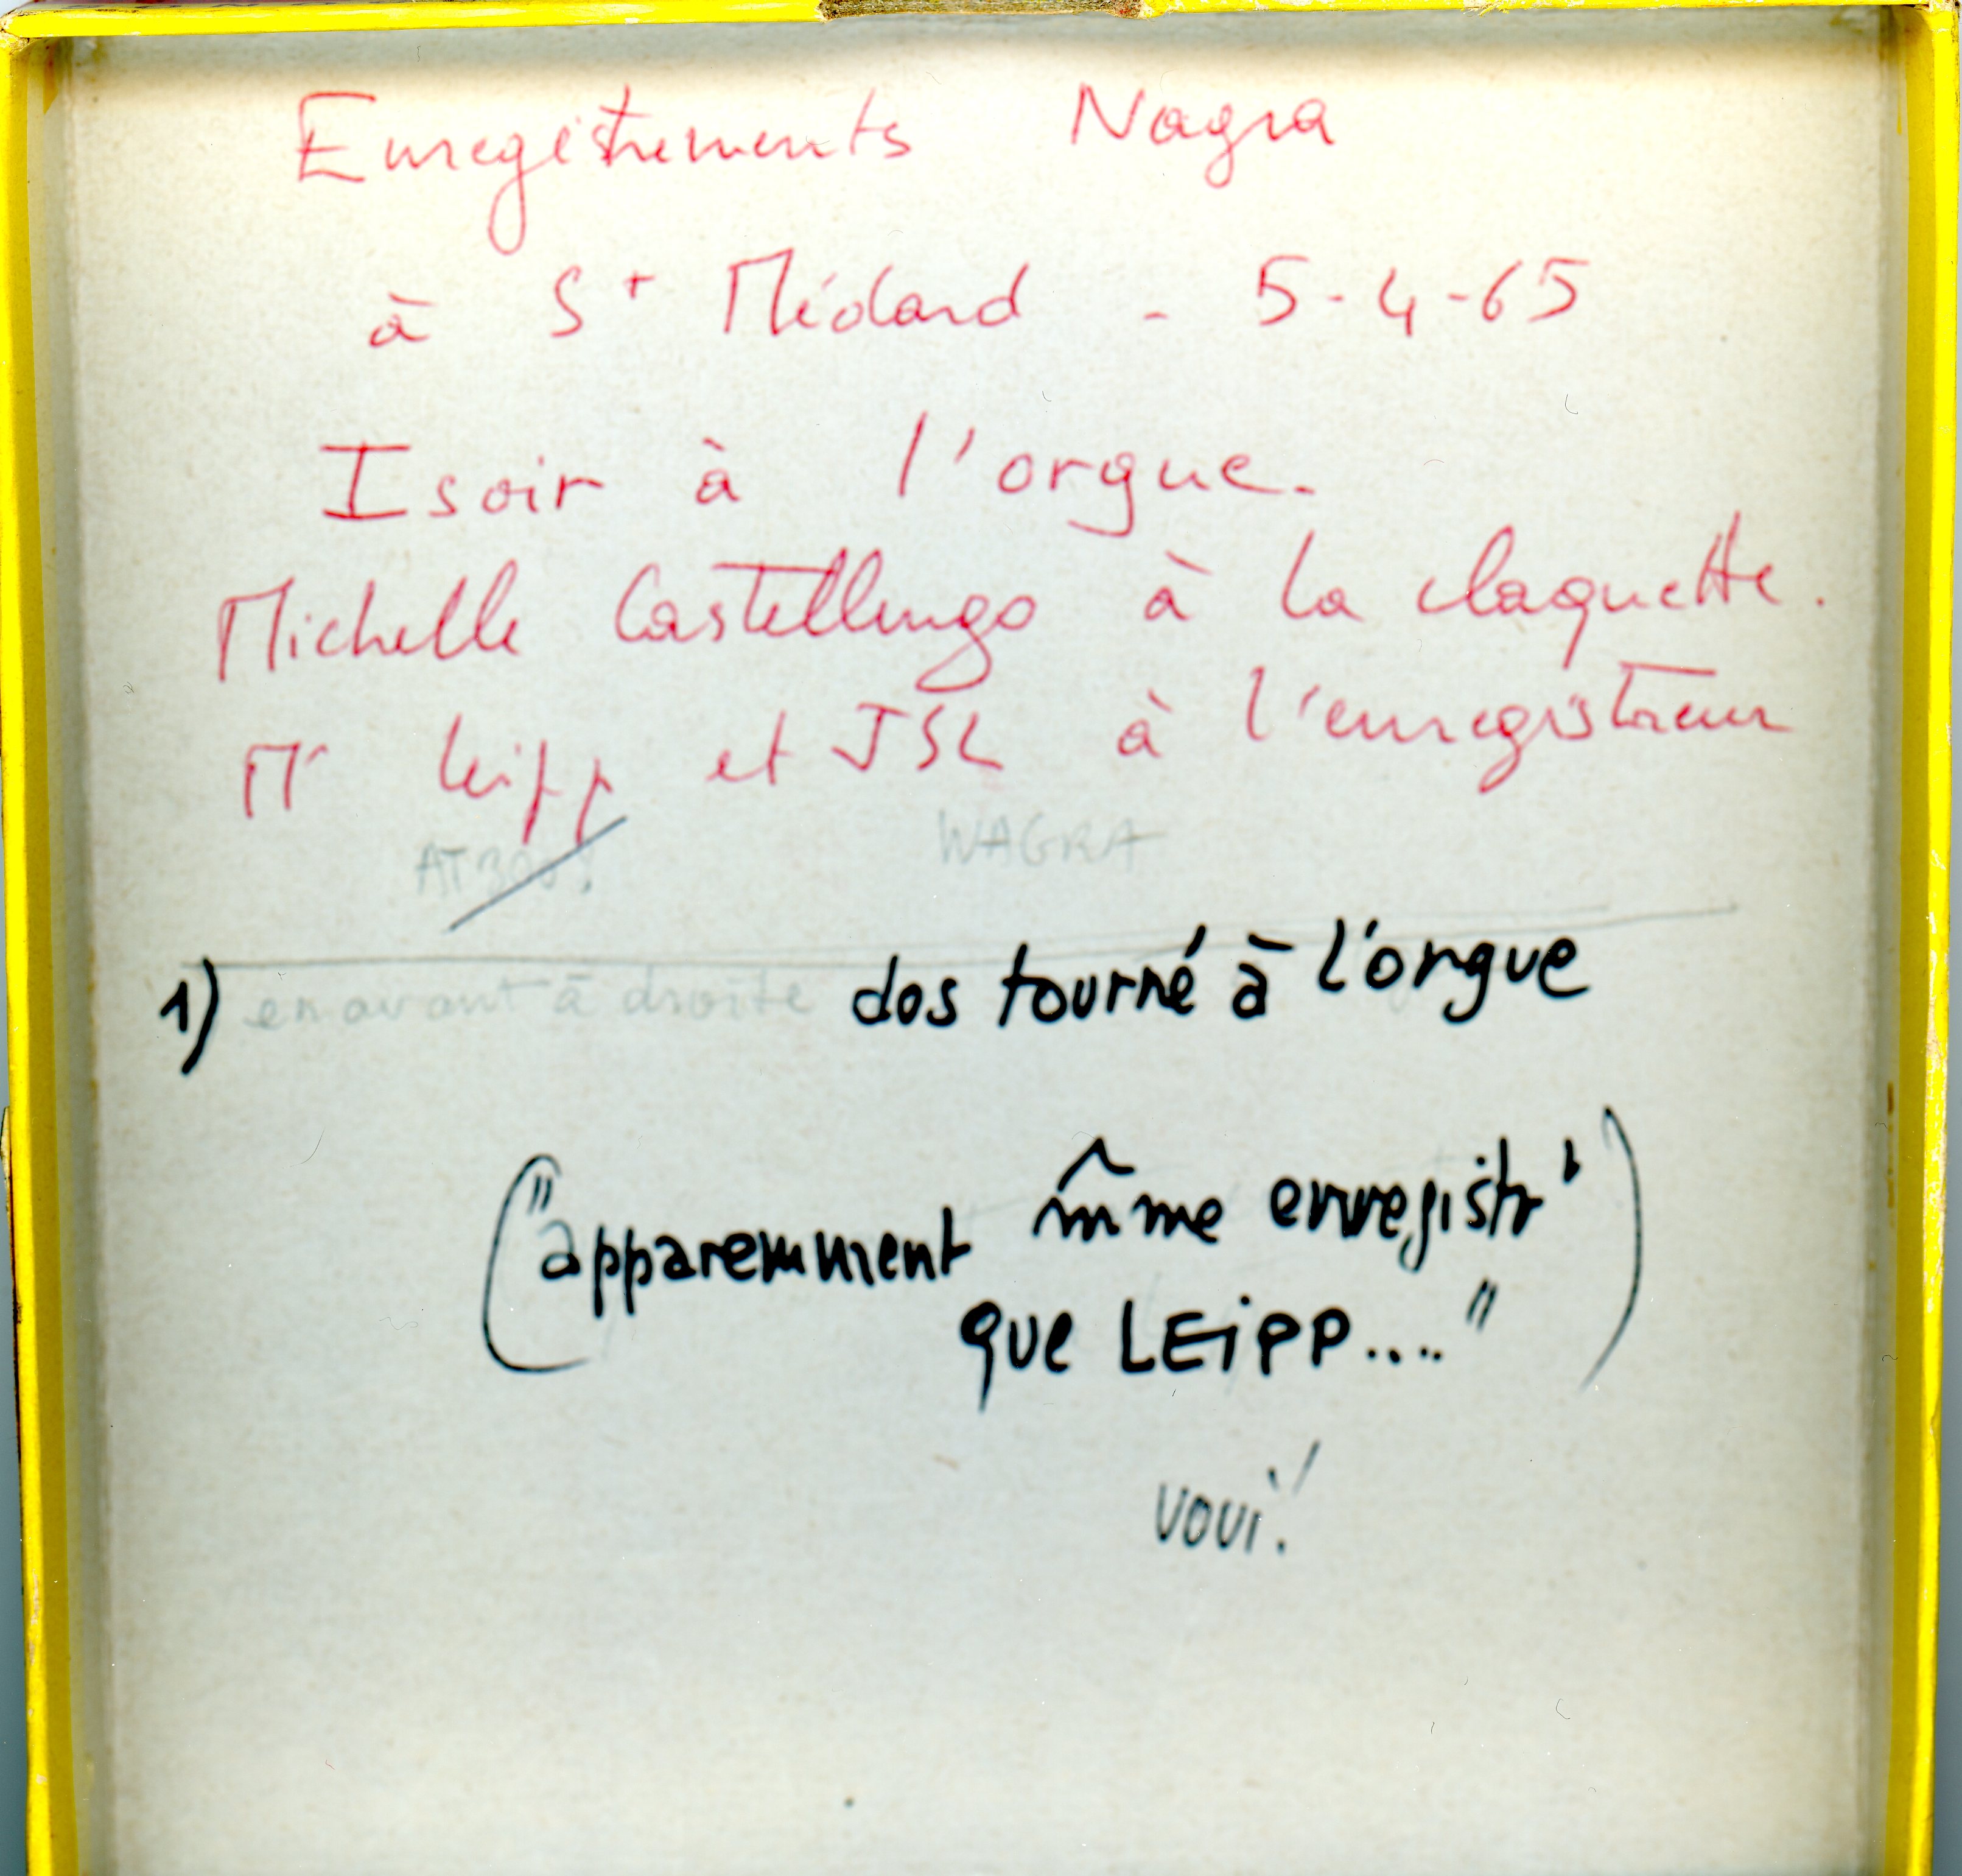 Enregistrements Nagra
à St Médard - 5-4-65
Isoir à l'orgue.
Michelle Castellengo à la claquette.
Mr Leipp et JSL à l'enregistreur
WAGRA
1) en avant à droite dos tourné à l'orgue
("apparemment même enregistrt
que LEiPP....")
voui!